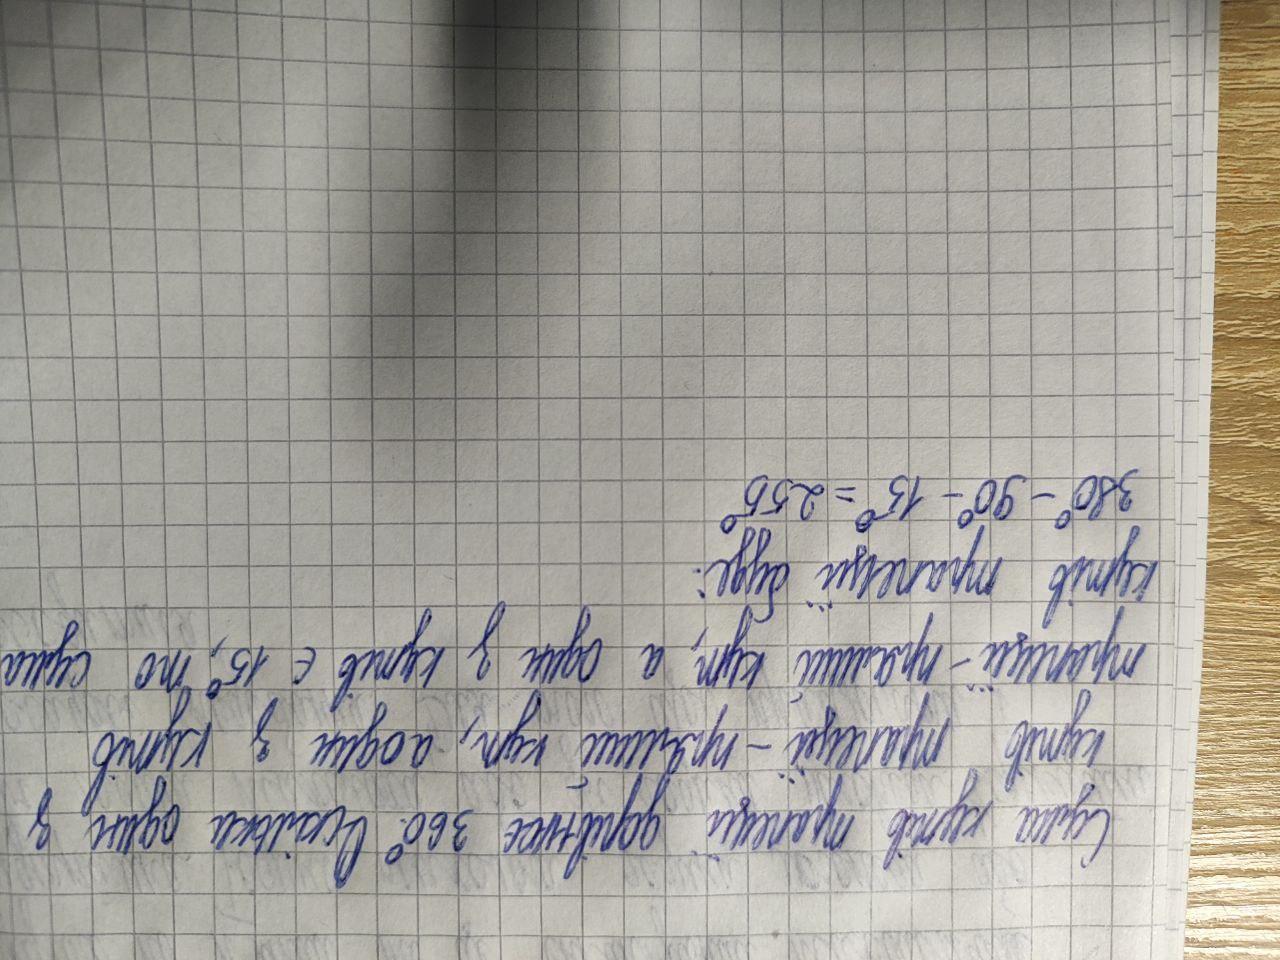 Сума кутів трапеції дорівнює 360°. Оскільки один з
кутів трапеції - прямий кут, а один з кутів
трапеції - прямий кут, а один з кутів є 15°, то сума
кутів трапеції буде:
380° - 90° - 15° = 255°